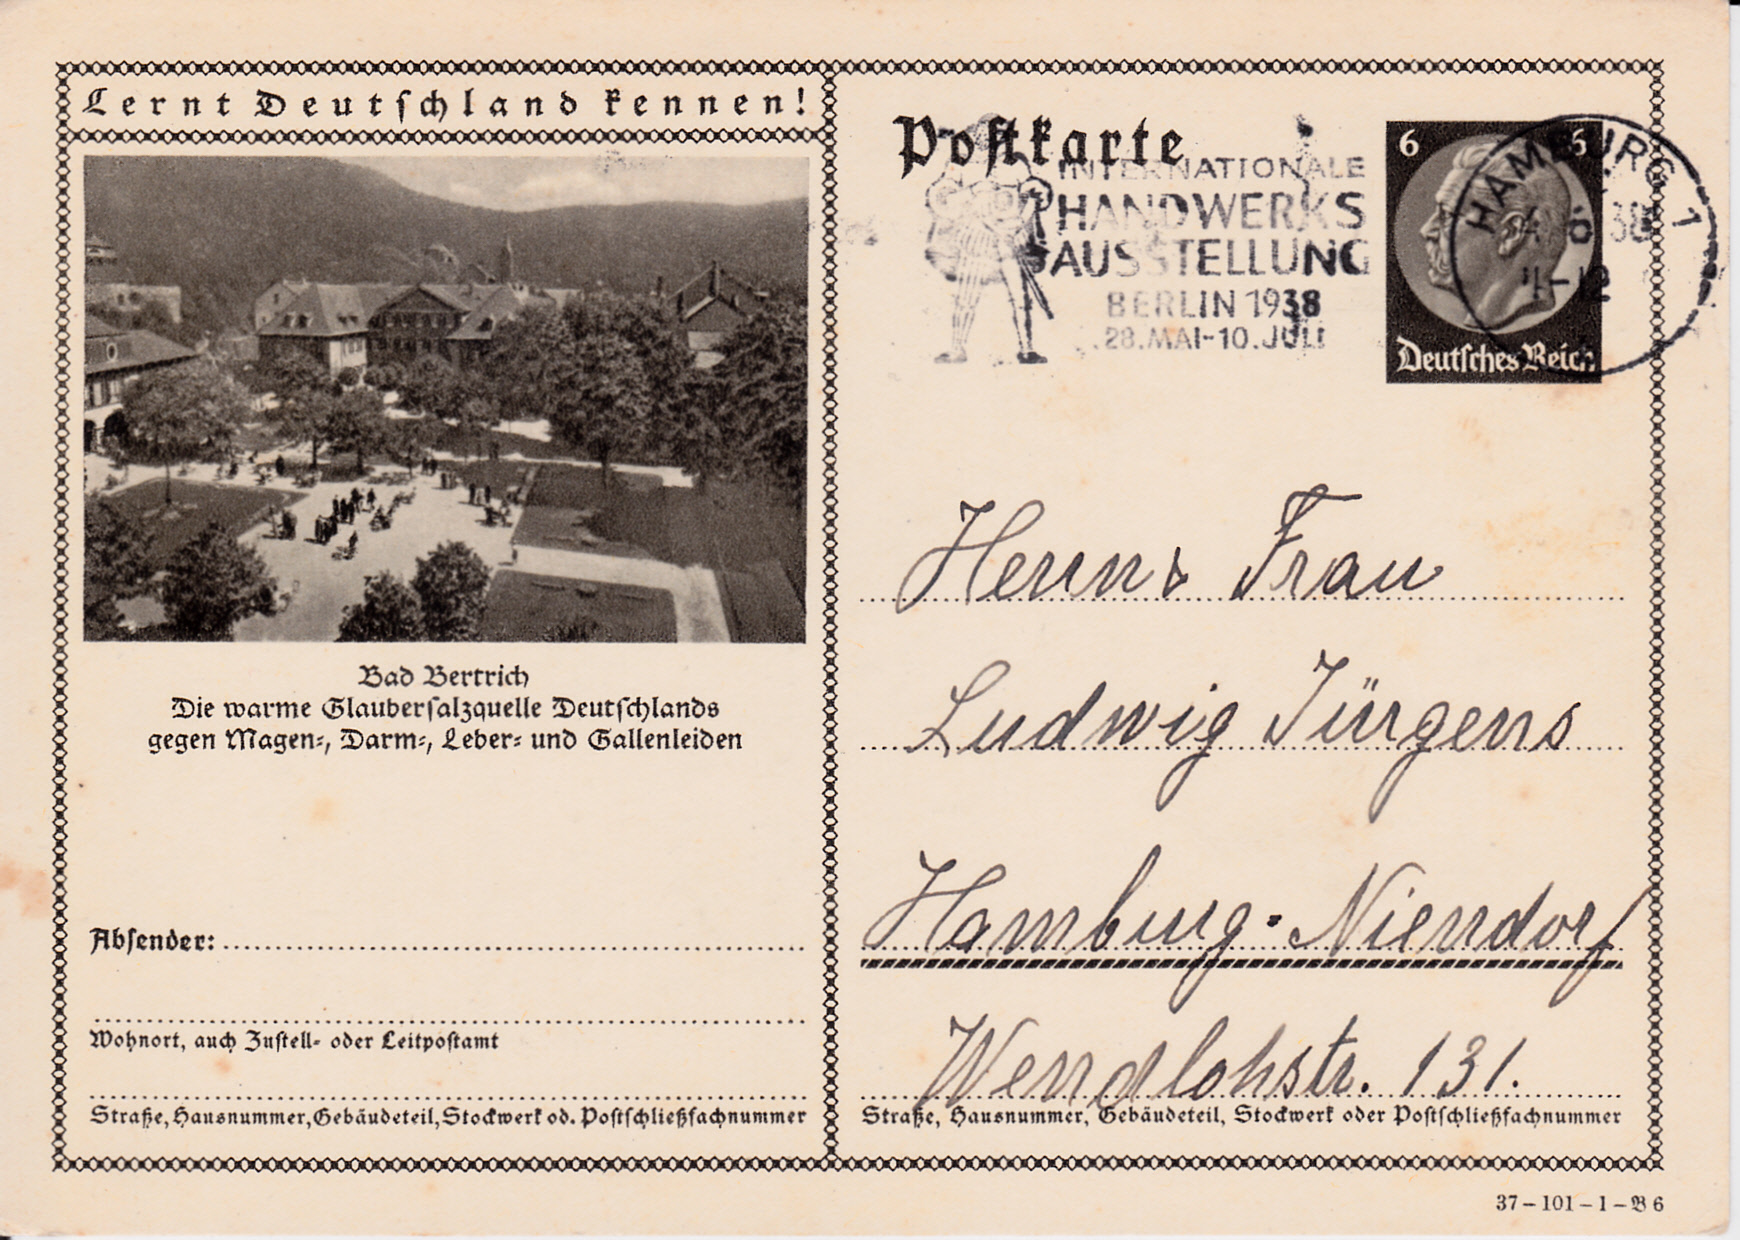 Lernt Deutschland kennen!
Bad Bertrich
Die warme Glaubersalzquelle Deutschlands
gegen Magen-, Darm-, Leber- und Gallenleiden
Absender:
Wohnort, auch Zustell- oder Leitpostamt
Straße, Hausnummer, Gebäudeteil, Stockwerk od. Postschließfachnummer
Postkarte
INTERNATIONALE
HANDWERKS
AUSSTELLUNG
BERLIN 1938
28.MAI-10.JULI
6 6
Deutsches Reich
HAMBURG 1
38
11-12
Herrn & Frau
Ludwig Jürgens
Hamburg-Niendorf
Wendlohstr. 131.
Straße, Hausnummer, Gebäudeteil, Stockwerk oder Postschließfachnummer
37-101-1-B 6